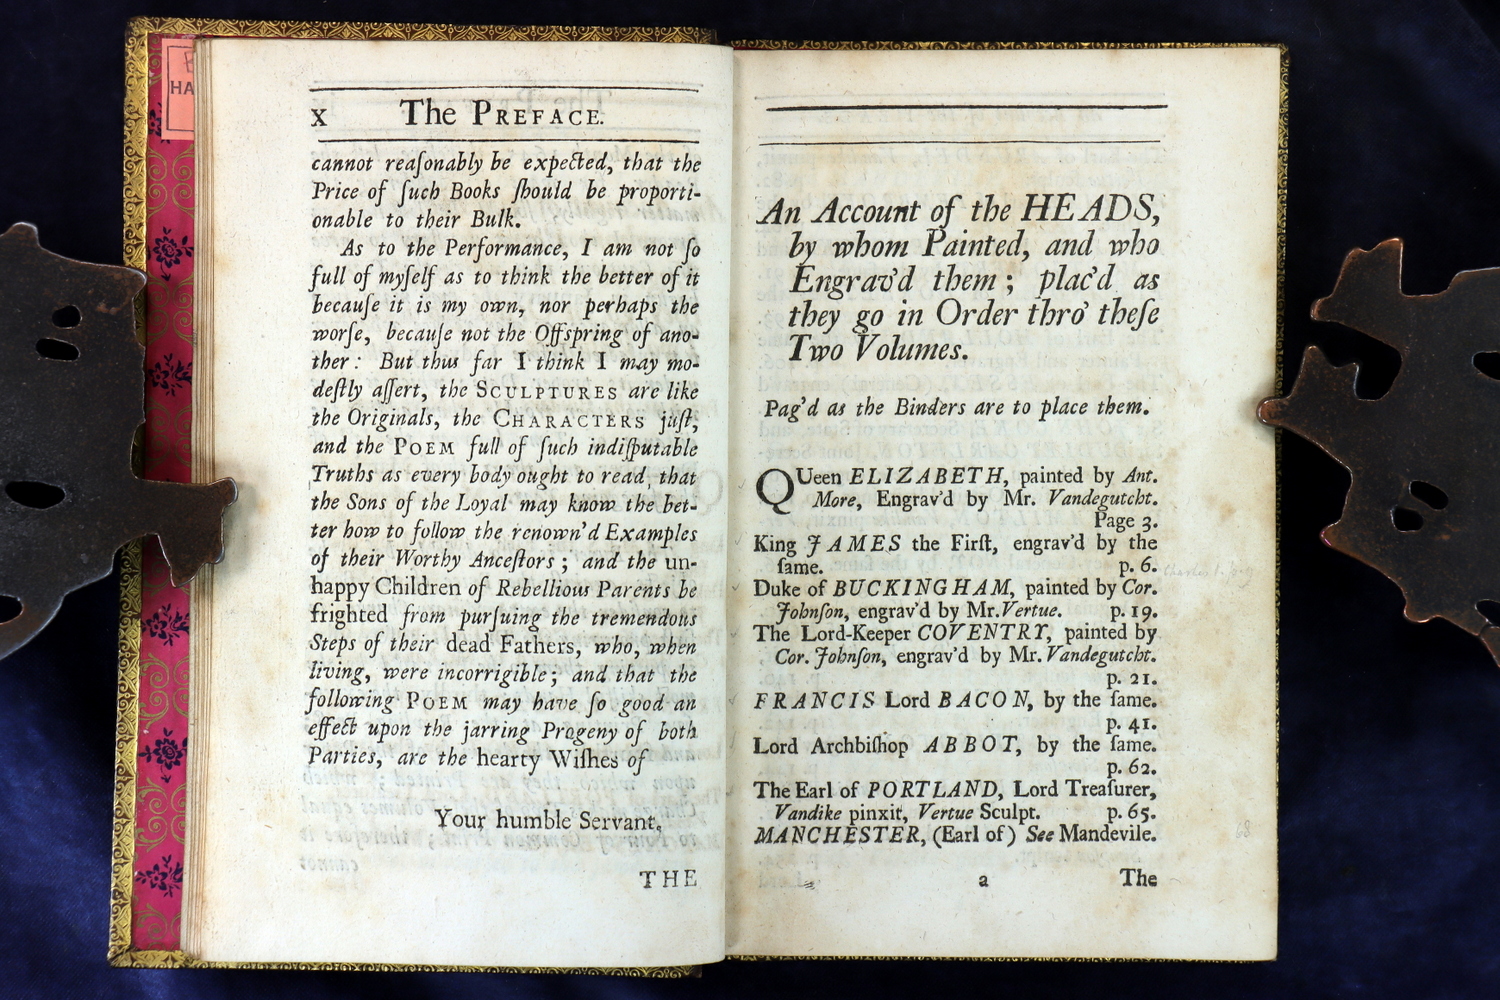 HA
x The PREFACE.
cannot reaſonably be expected, that the
Price of ſuch Books ſhould be proporti-
onable to their Bulk.
As to the Performance, I am not ſo
full of myſelf as to think the better of it
becauſe it is my own, nor perhaps the
worſe, becauſe not the Offspring of ano-
ther: But thus far I think I may mo-
deſtly aſſert, the SCULPTURES are like
the Originals, the CHARACTERS juſt,
and the POEM full of ſuch indiſputable
Truths as every body ought to read, that
the Sons of the Loyal may know the bet-
ter how to follow the renown'd Examples
of their Worthy Anceſtors; and the un-
happy Children of Rebellious Parents be
frighted from purſuing the tremendous
Steps of their dead Fathers, who, when
living, were incorrigible; and that the
following POEM may have ſo good an
effect upon the jarring Progeny of both
Parties, are the hearty Wiſhes of
Your humble Servant,
THE
An Account of the HEADS,
by whom Painted, and who
Engrav'd them; plac'd as
they go in Order thro' theſe
Two Volumes.
Pag'd as the Binders are to place them.
QUeen ELIZABETH, painted by Ant.
More, Engrav'd by Mr. Vandegutcht.
Page 3.
King JAMES the Firſt, engrav'd by the
ſame. p. 6.
Duke of BUCKINGHAM, painted by Cor.
Johnſon, engrav'd by Mr. Vertue. p. 19.
The Lord-Keeper COVENTRY, painted by
Cor. Johnſon, engrav'd by Mr. Vandegutcht.
p. 21.
FRANCIS Lord BACON, by the ſame.
p. 41.
Lord Archbiſhop ABBOT, by the ſame.
p. 62.
The Earl of PORTLAND, Lord Treaſurer,
Vandike pinxit, Vertue Sculpt. p. 65.
MANCHESTER, (Earl of) See Mandevile.
68
a The